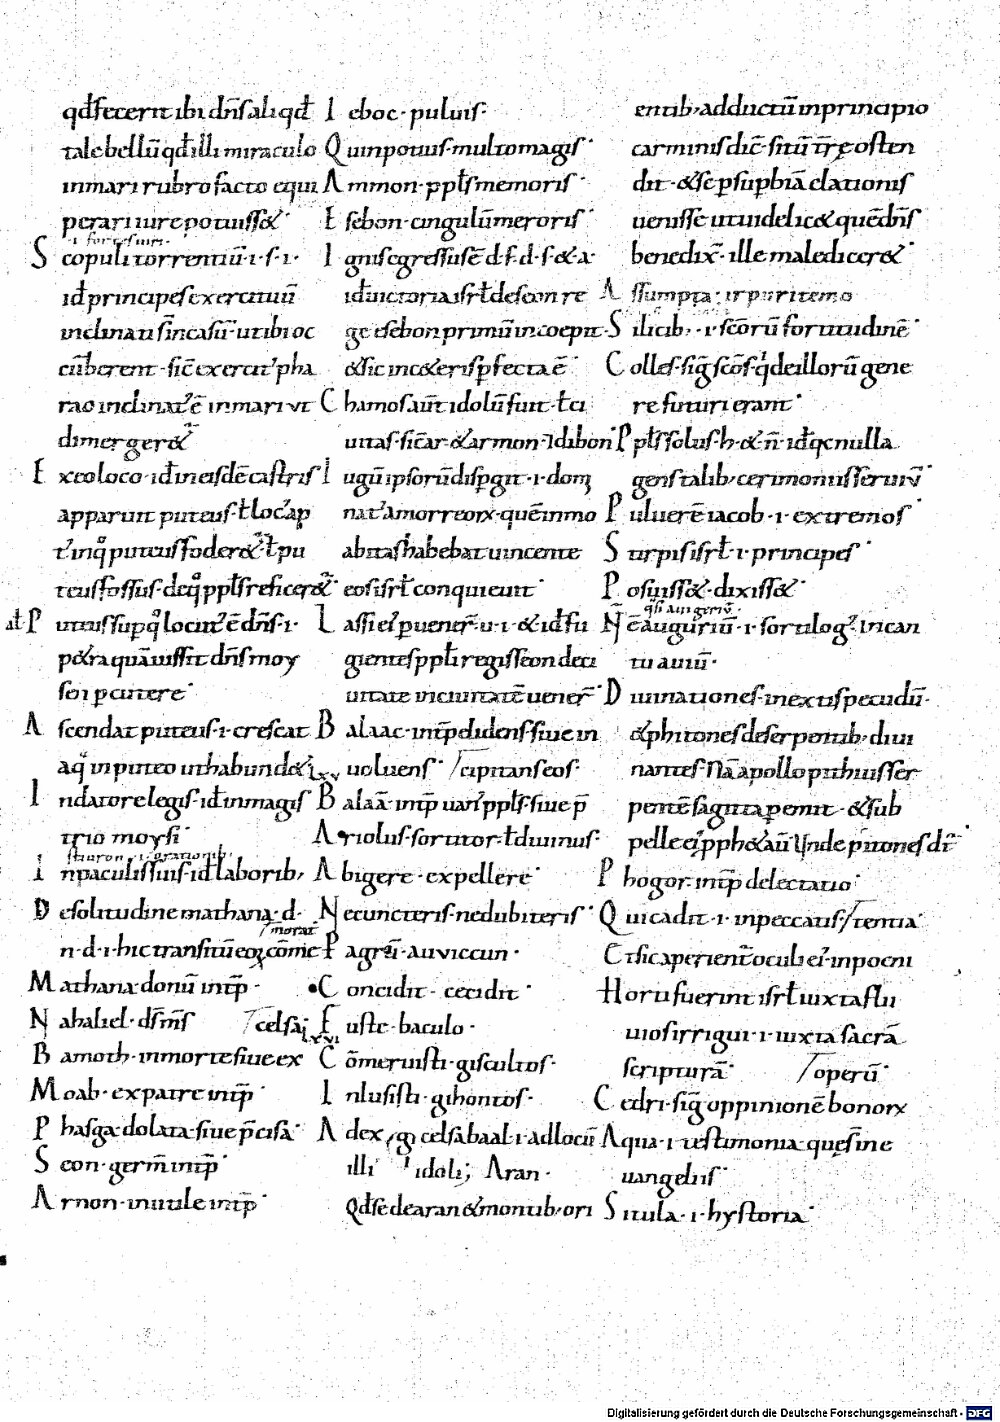 qđfecerit ibi dn̄s aliqđ
tale bellū qđ illi miraculo
in mari rubro facto equi
perari iure potuiss&
.i. fortes uiri.
Scopuli torrentiū .i. s. i.
iđ principes exercituū
inclinati sin̄ casū ut ibi oc
cūberent. sic̄ exercit' pha
rao inclinat' ē in mari ut
dimerger&
Ex eo loco. iđ in eisdē castris
apparuit puteus. ł loc' ap
puteus foder& ł pu
teus fossus. de q̊ ppl̄s reficer&
Puteus sup q̊ locut' ē dn̄s .i.
p&ra quā iussit dn̄s moy
sei pcutere
Ascendat puteus .i. crescat
aq̄ in puteo ut habund&
In datore legis. iđ in magis
trio moysi
In paculis suis. iđ laborib;
Desolitudine mathana. d.
n. d. i. hic transitū eoꝝ cōme
morat
Mathana. donū int̄p.
Nahaliel. 
Bamoth. in morte siue ex
celsa;
Moab. ex patre int̄p
Phasga. dolata siue p̄cisa
Seon. germ̄ int̄p
Arnon. inutile int̄p
Ieboc. puluis.
Quin potius. multo magis
Ammon. ppl̄s memoris
Esebon. cingulū meroris
Ignis egressus ē d. f. d. s. & a.
iđ uictoria isrł de seon re
ge esebon primū incoepit.
& sic in c&eris pfecta ē
Chamos aūt idolū fuit. ł ci
uitas. sic̄ ar. & armon. ⁊ dibon
Iugū ipsorū dispgit .i. dom̄
nat' amorreoꝝ. quē in mo
abitas habebat uincente
eos isrł conquieuit
Lassi ei' puener̄ .u. i. & iđ fu
gientes ppl̄i regis seon de ci
uitate in ciuitatē uener̄
Balaac. int̄p elidens. siue in
uoluens. /cipitans eos.
lxv
Balaā. int̄p uan' ppl̄s. siue p̄
Ariolus. sortitor. ł diuinus.
Abigere. expellere
Ne cuncteris. ne dubiteris
Pagrēi. auviccun.
Concidit. cecidit
Fuste. baculo.
lxvi
Cōmeruisti. giscultos.
Inlusisti. gihontos.
Ad excelsa baal .i. ad locū
illi' idoli; Aran.
Qđ se de aran & montib; ori
entib; adductū in principio
carminis dic̄. sitū trę osten
dit. & se p supbiā elationis
uenisse. ut uidelic& quē dn̄s
benedix̄. ille maledicer&
Assumpta
Silicib;. i. scōrū fortitudinē
Colles. siḡ scōs. q̇ de illorū gene
re futuri erant
Ppl̄s solus. h. & n̄. iđ qc nulla
gens talib; cerimoniis seruiv̄
Puluerē iacob .i. extremos
Stirpis isrł .i. principes
Posuiss&. dixiss&
qsi auigeriū.
Nē auguriū .i. sortilog'. in can
tu auiū.
Diuinationes. in extis pecudū.
& phitones de serpentib; diui
nantes. Nā apollo pithius ser
pentē sagitta pemit. & sub
pelle ei' pph&aū. Unde pitones dr̄
Phogor. int̄p delectatio
Qui cadit .i. in peccatis. /tentia
Et sic aperient̄ oculi ei'. in poeni
Horti fuerint isrł iuxta flu
uios irrigui .i. iuxta sacrā
scripturā /operū
Cedri. siḡ oppinionē bonoꝝ
Aqua .i. testimonia. quę sine
uangeliis
Situla .i. hystoria